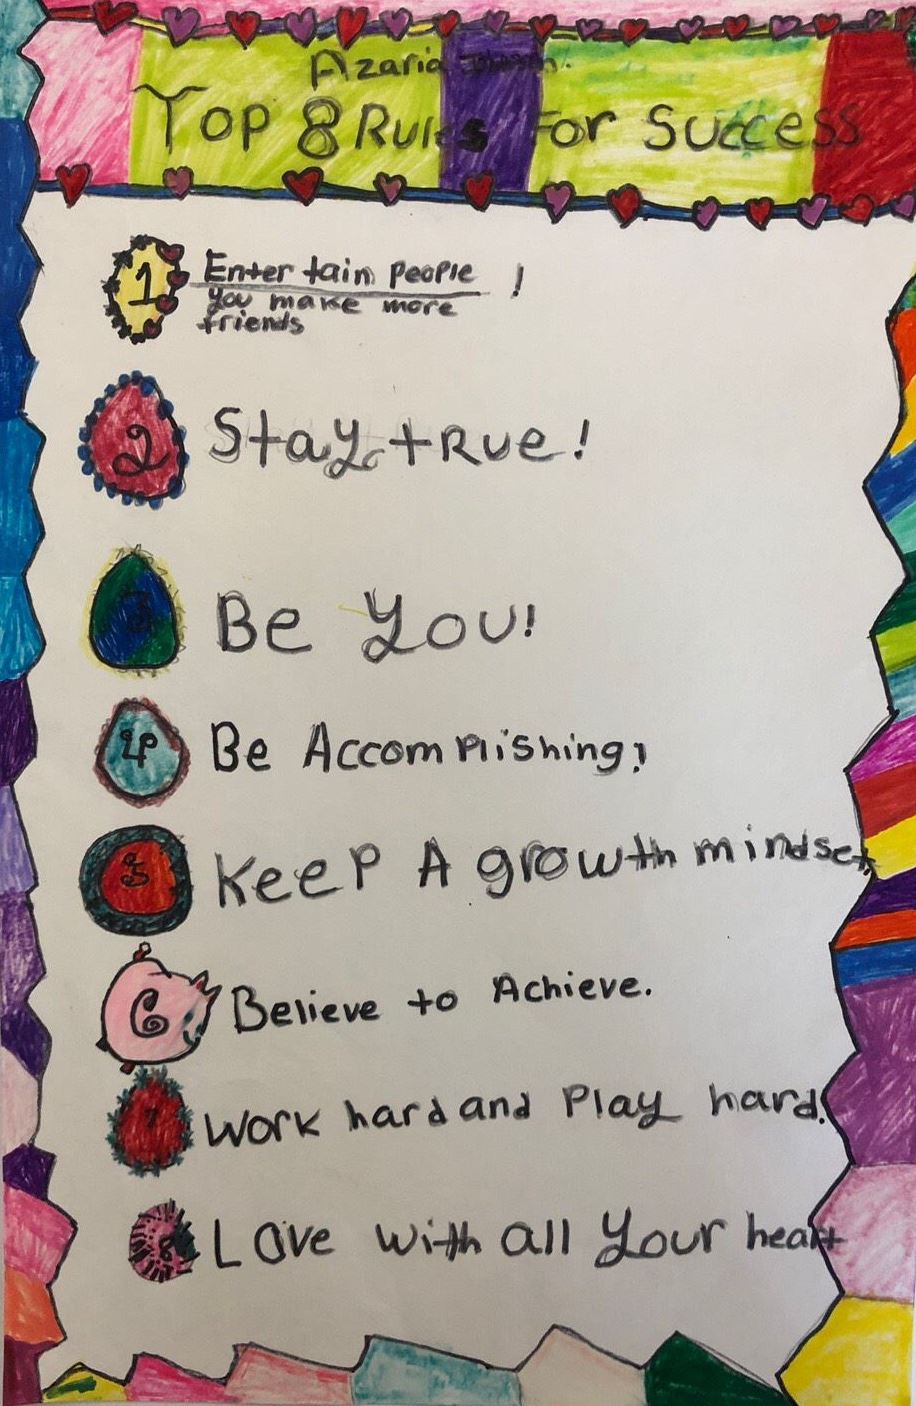 Azaria
Top 8 Rules For Success
1 Entertain people !
you make more
friends
2 Stay true!
3 Be You!
4 Be Accomplishing!
5 Keep A growth mindset
6 Believe to Achieve.
7 Work hard and Play hard!
8 Love with all your heart